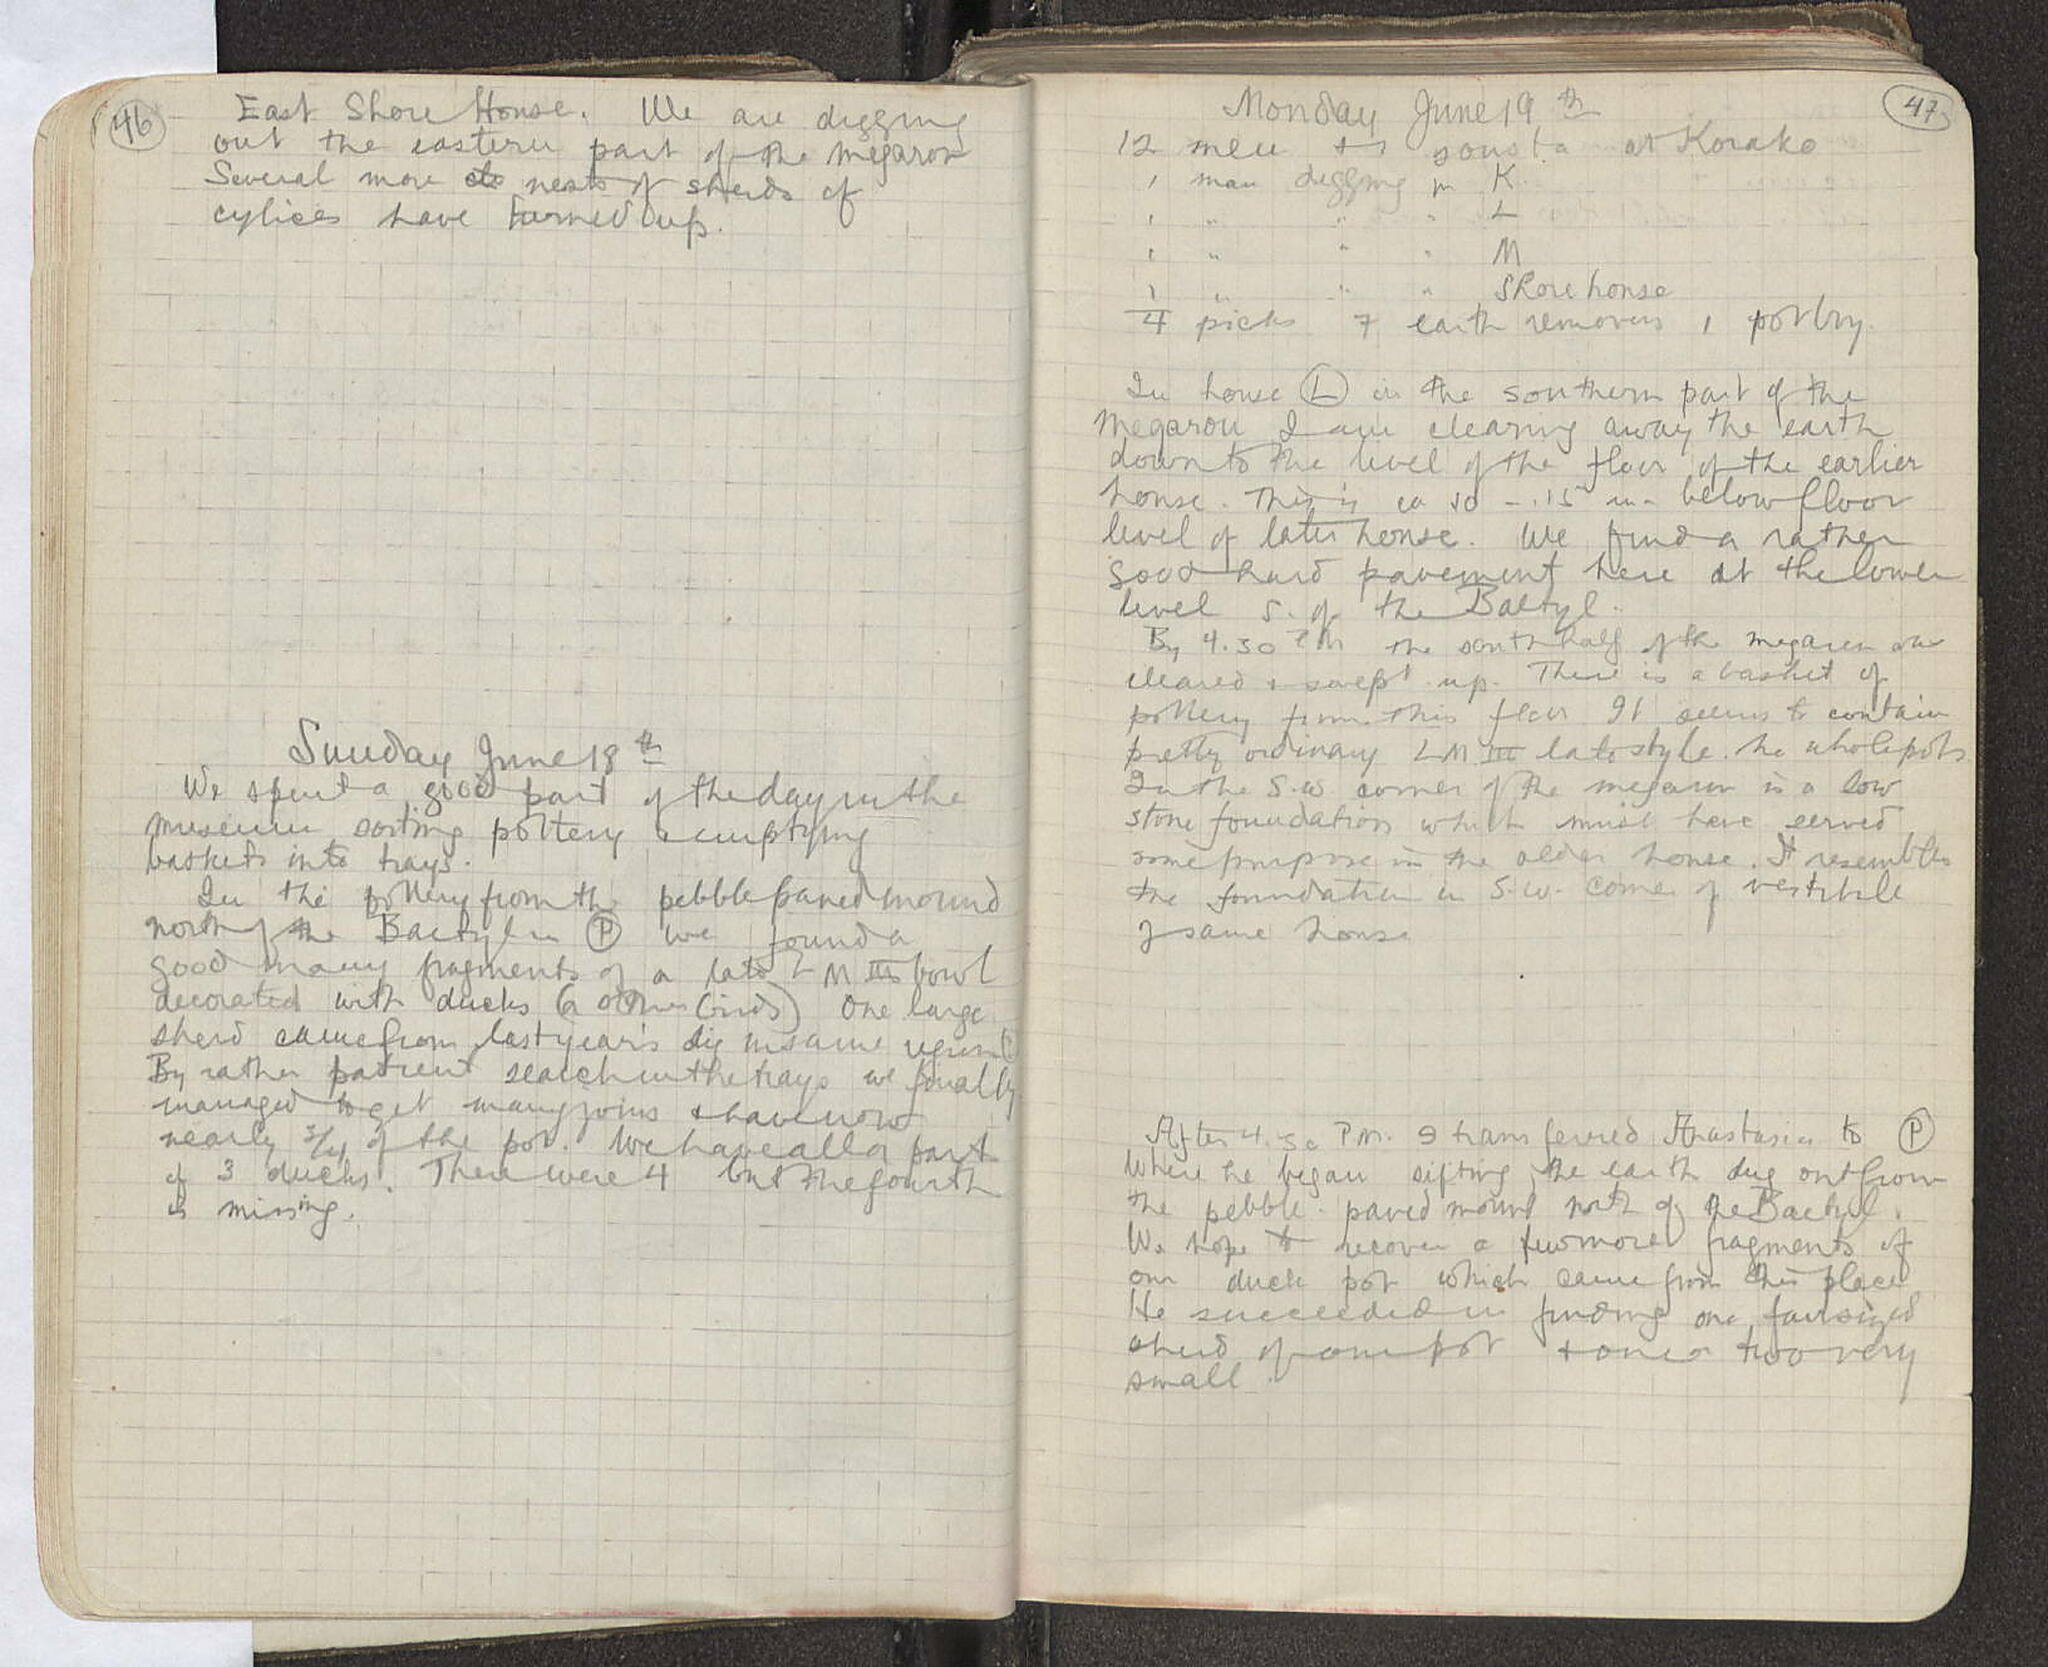 46
East Shore House. We are digging
out the eastern part of the megaron
Several more nests of sherds of
cylices have turned up.
Sunday June 18th
We spent a good part of the day in the
museum sorting pottery & emptying
baskets into trays.
In the pottery from the pebble paved mound
north of the Baetyl in P we found a
good many fragments of a late LM III bowl
decorated with ducks (or other birds) One large
sherd came from last year's dig in same region
By rather patient search in the trays we finally
managed to get many joins & have now
nearly 3/4 of the pot. We have all or part
of 3 ducks. There were 4 but the fourth
is missing.
47
Monday June 19th
12 men & 1 sousta at Korako
1 man digging in K
1 " " " L
1 " " " M
1 " " " Shore house
4 picks 7 earth removers 1 pot boy.
In house L in the southern part of the
megaron I am clearing away the earth
down to the level of the floor of the earlier
house. This is ca 10 - .15 m. below floor
level of later house. We find a rather
good hard pavement here at the lower
level S. of the Baetyl.
By 4.30 PM the south half of the megaron are
cleared & swept up. There is a basket of
pottery from this floor It seems to contain
pretty ordinary LM III late style. No whole pots
In the S.W. corner of the megaron is a low
stone foundation which must have served
some purpose in the older house. It resembles
the foundation in S.W. corner of vestibule
of same house
After 4.30 P.M. I transferred Anastasios to P
Where he began sifting the earth dug out from
the pebble-paved mound north of the Baetyl.
We hope to recover a few more fragments of
our duck pot which came from this place
He succeeded in finding one fair sized
sherd of our pot & one or two very
small.